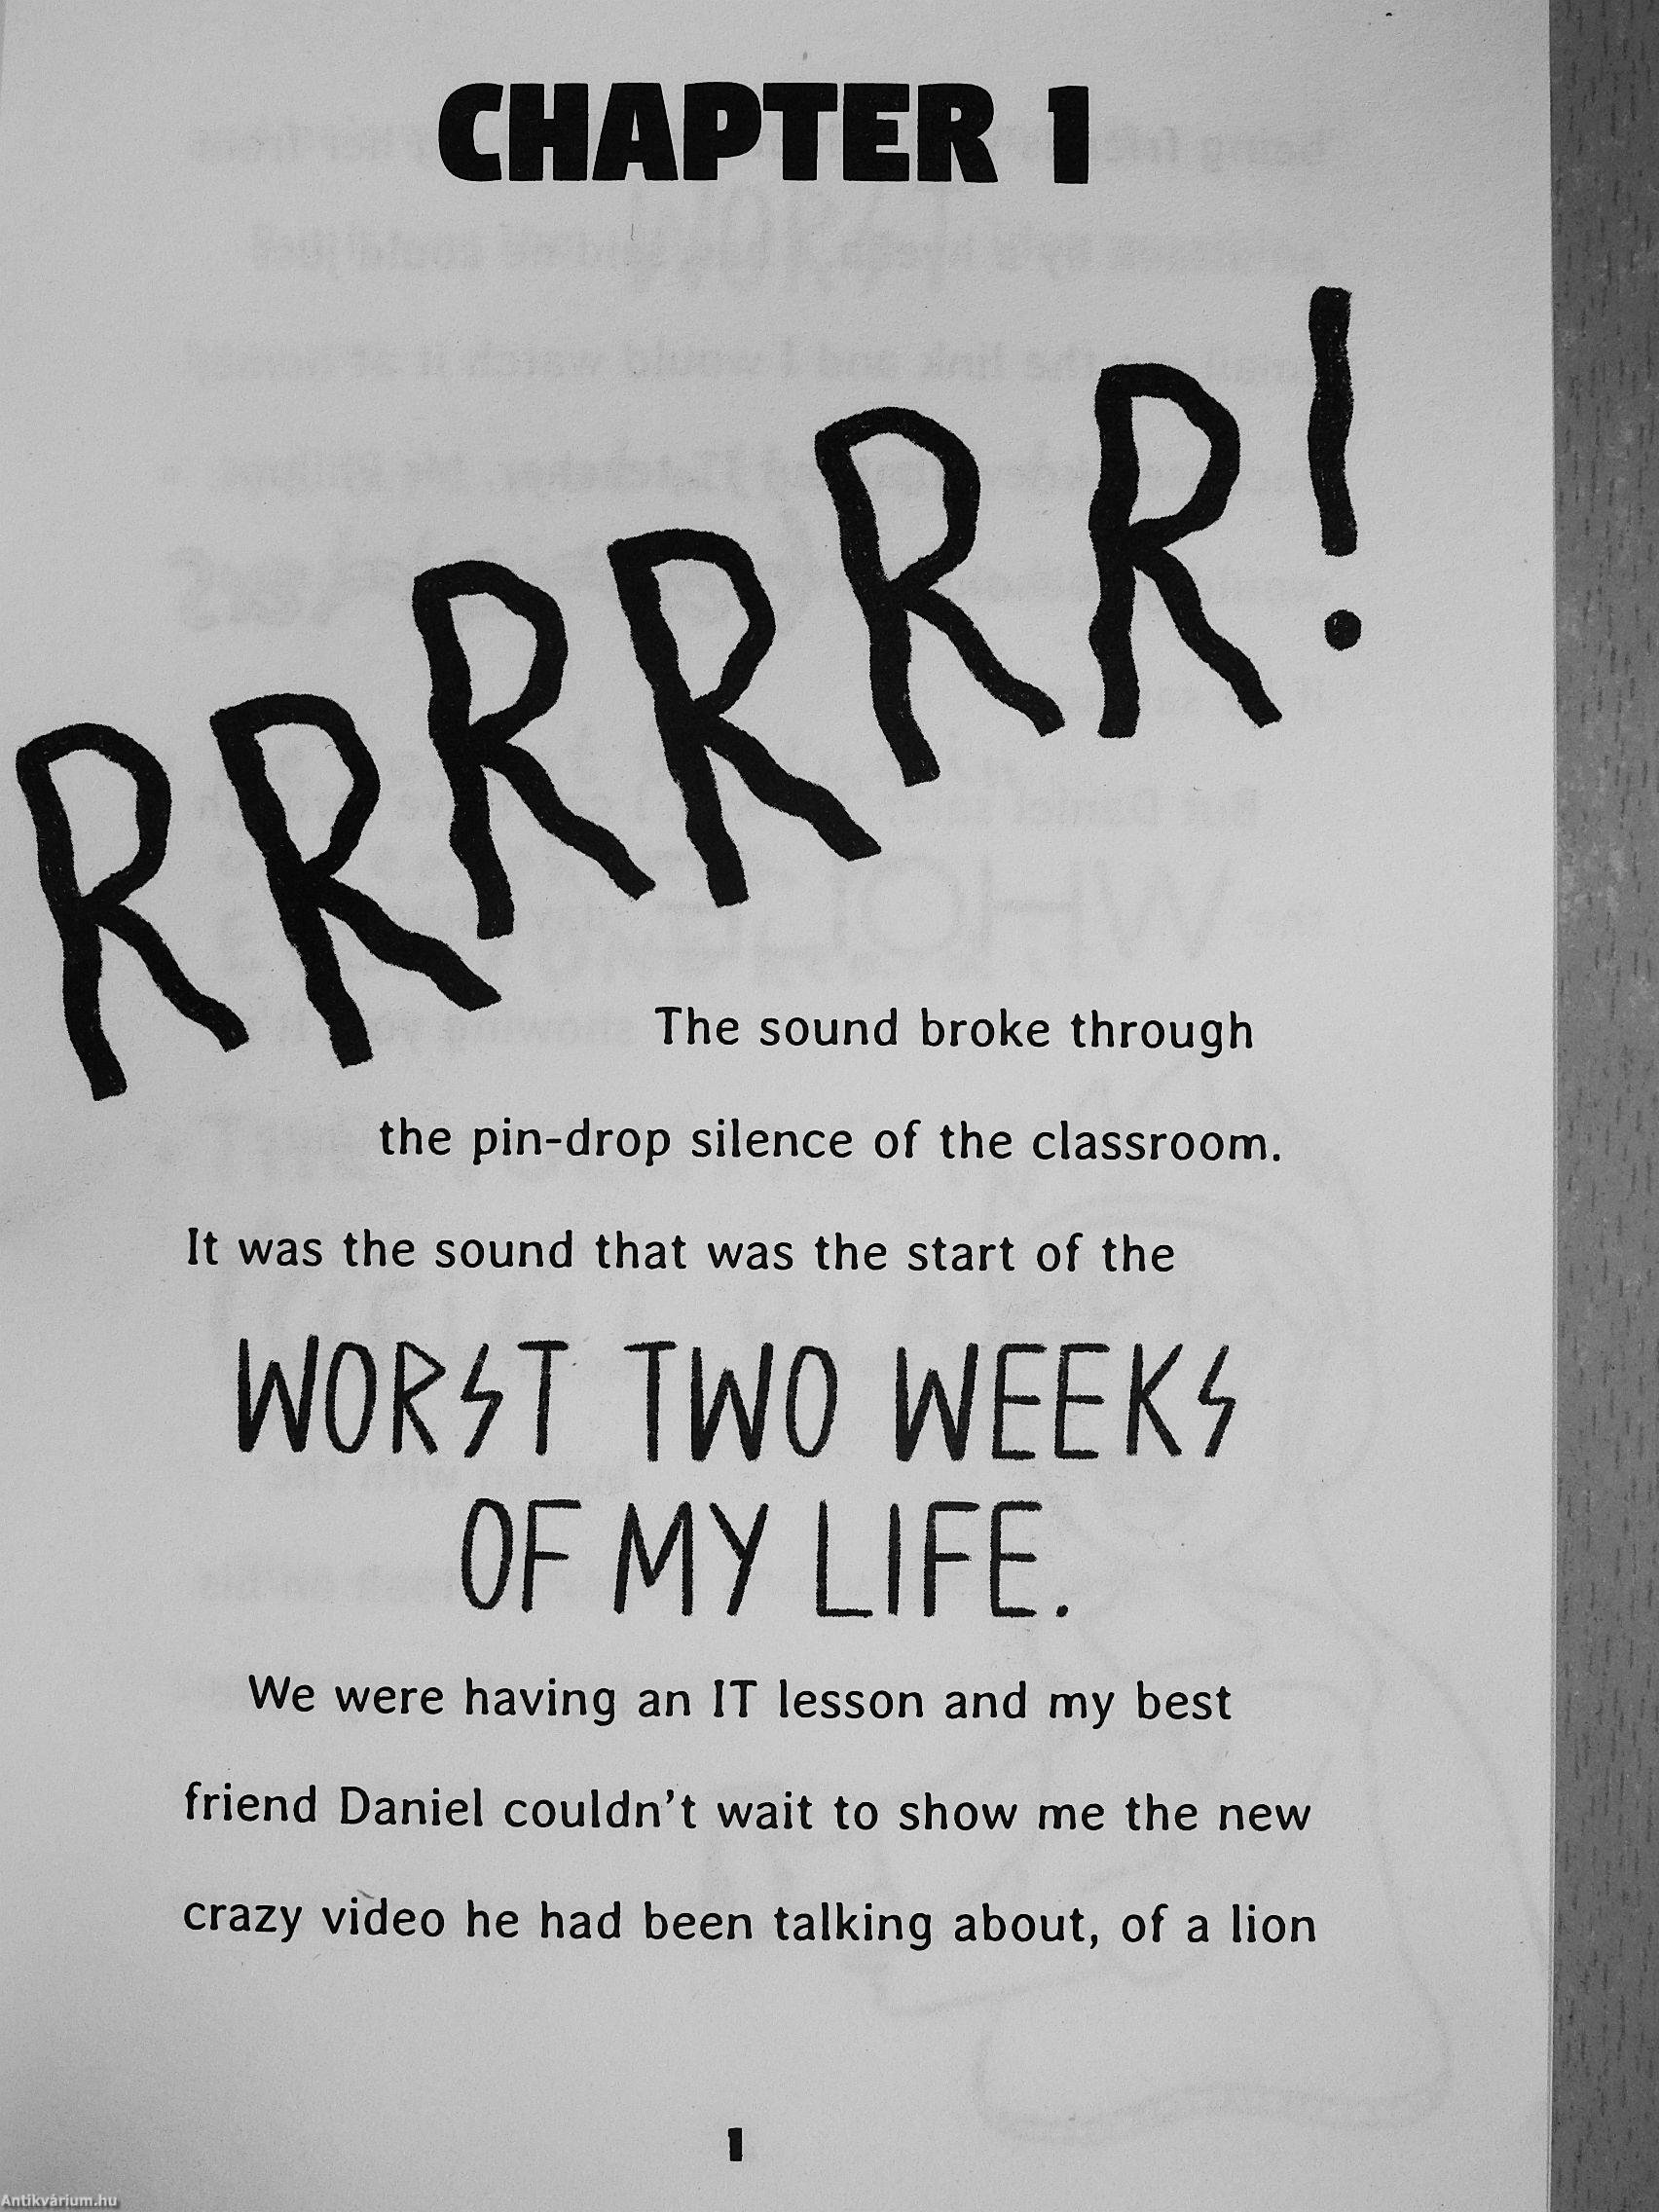 CHAPTER 1
RRRRRR!
The sound broke through
the pin-drop silence of the classroom.
It was the sound that was the start of the
WORST TWO WEEKS
OF MY LIFE.
We were having an IT lesson and my best
friend Daniel couldn't wait to show me the new
crazy video he had been talking about, of a lion
1
Antikvárium.hu